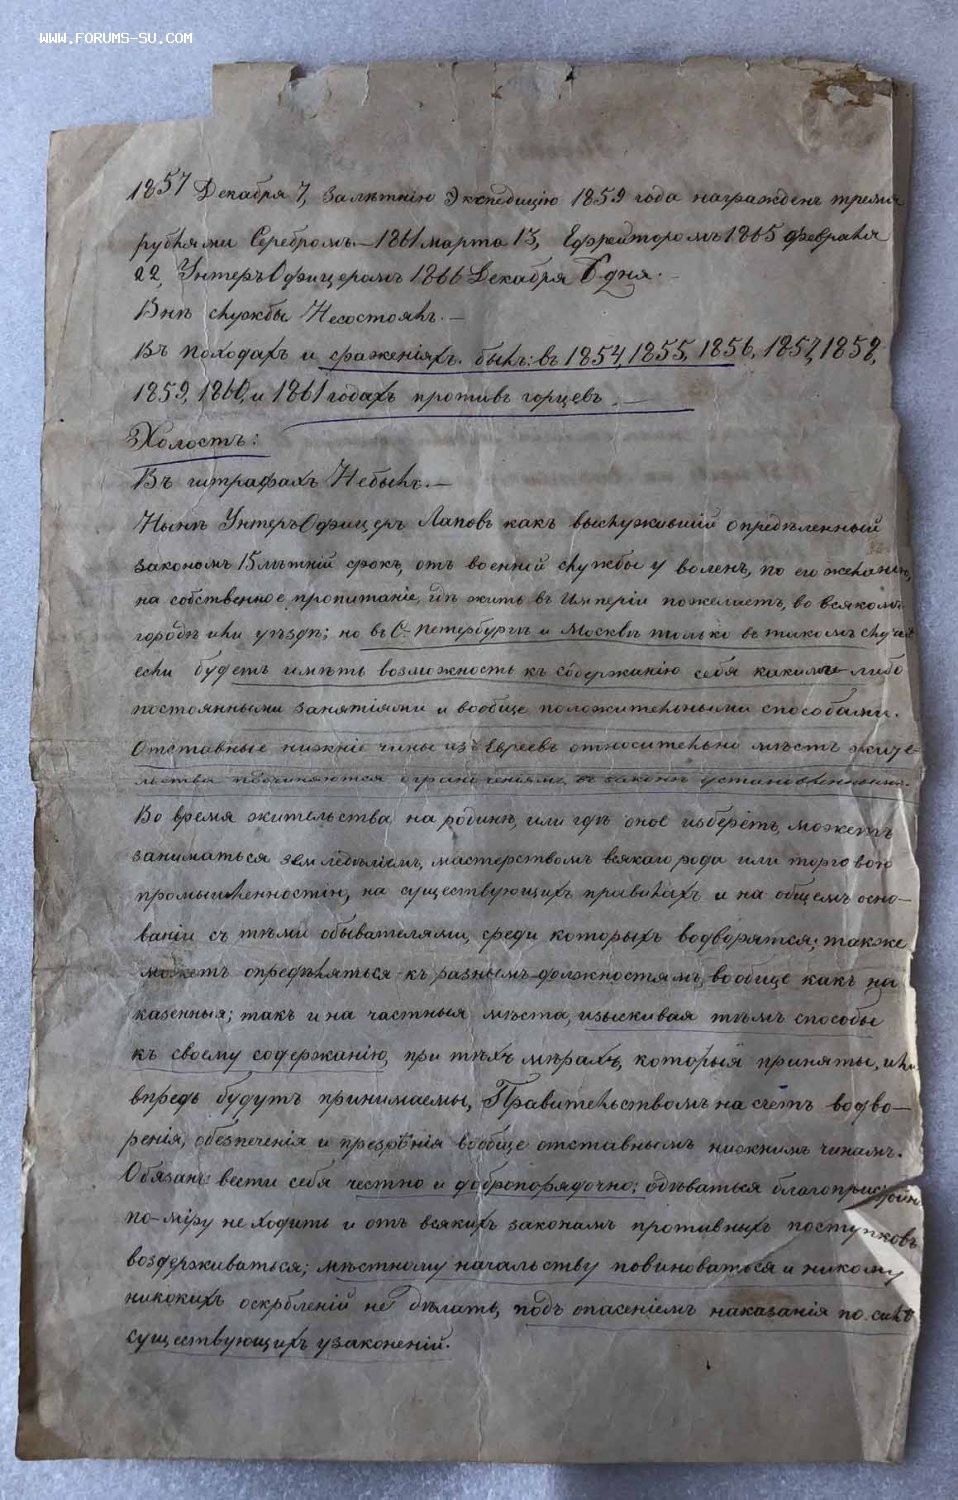 www.forums-su.com
1857 Декабря 7, за лѣтнію Экспедицію 1859 года награжденъ тремя
рублями Серебромъ. — 1861 марта 13, Ефрейторомъ 1865 февраля
22, Унтеръ Офицеромъ 1866 Декабря 6 дня. —
Внѣ службы Несостоялъ. —
Въ походахъ и сраженіяхъ былъ: въ 1854, 1855, 1856, 1857, 1858,
1859, 1860, и 1861 годахъ противъ горцевъ. —
Холостъ:
Въ штрафахъ Небылъ. —
Нынѣ Унтеръ Офицеръ Лаповъ какъ выслужившій опредѣленный
закономъ 15 лѣтній срокъ, отъ военной службы уволенъ, по его желанію,
на собственное пропитаніе, гдѣ жить въ Имперіи пожелаетъ, во всякомъ
городѣ или уѣздѣ; но въ С. Петербургѣ и Москвѣ только въ такомъ случаѣ
если будетъ имѣть возможность къ содержанію себя какими-либо
постоянными занятіями и вообще положительными способами.
Отставные нижніе чины изъ Евреевъ относительно мѣстъ жите-
льства подчиняются ограниченіямъ, въ законѣ установленнымъ.
Во время жительства на родинѣ, или гдѣ оное изберетъ, можетъ
заниматься земледѣліемъ, мастерствомъ всякаго рода или торговою
промышленностію, на существующихъ правилахъ и на общемъ осно-
ваніи съ тѣми обывателями, среди которыхъ водворятся; также
можетъ опредѣляться къ разнымъ должностямъ, вообще какъ на
казенныя; такъ и на частныя мѣста, изыскивая тѣмъ способы
къ своему содержанію, при тѣхъ мѣрахъ, которыя приняты, или
впредь будутъ принимаемы, Правительствомъ на счетъ водво-
ренія, обезпеченія и презрѣнія вообще отставнымъ нижнимъ чинамъ.
Обязанъ: вести себя честно и добропорядочно; одѣваться благопристойно
по-міру не ходить и отъ всякихъ законамъ противныхъ поступковъ
воздерживаться; мѣстному начальству повиноваться и никому
никокихъ оскрбленій не дѣлать, подъ опасеніемъ наказанія по силѣ
существующихъ узаконеній.